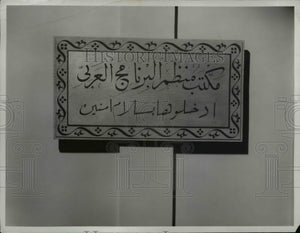 HISTORIC IMAGES
مكتب منظم البرنامج العربي
ادخلوها بسلام آمنين